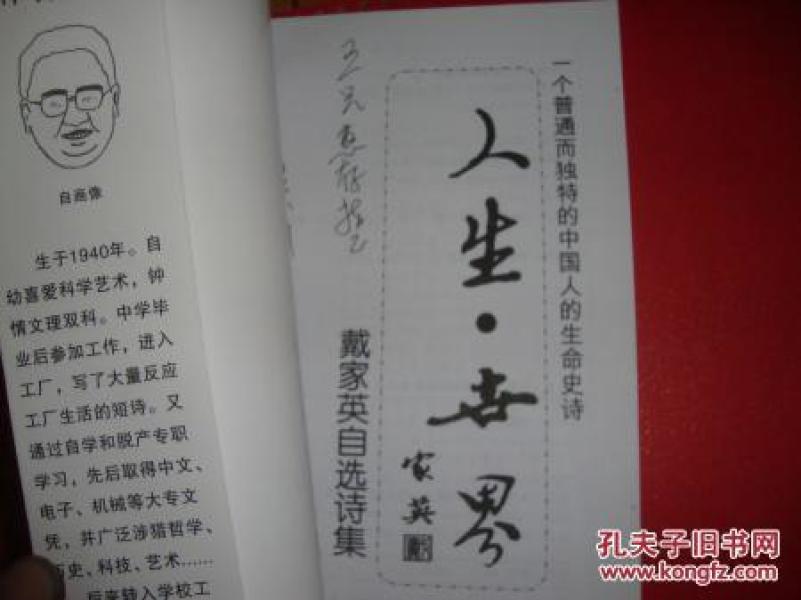 自画像
生于1940年。自
幼喜爱科学艺术，钟
情文理双科。中学毕
业后参加工作，进入
工厂，写了大量反应
工厂生活的短诗。又
通过自学和脱产专职
学习，先后取得中文、
电子、机械等大专文
凭，并广泛涉猎哲学、
历史、科技、艺术……
后来转入学校工
一个普通而独特的中国人的生命史诗
人生·世界
家英
戴家英自选诗集
孔夫子旧书网
www.kongfz.com